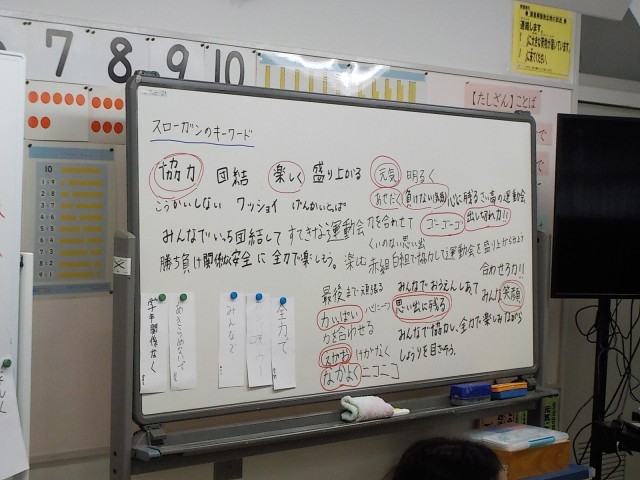 7 8 9 10
【たしざん】ことば
スローガンのキーワード
協力 団結 楽しく 盛り上がる 元気 明るく
こうかいしない ワッショイ げんかいとっぱ
あせだく 負けない 心に残る さい高の運動会
みんなでいっち団結して すてきな運動会 力を合わせて ゴーゴーゴー 出し切れ力!!
くいのない思い出
勝ち負け関係なく安全に 全力で楽しもう。 楽しむ 赤組白組で協力して運動会を盛り上がらせよう
合わせろ力!!
最後まで頑張る みんなでおうえんしあて みんな笑顔
力いっぱい 思い出に残る
力を合わせる みんなで協力し、全力で楽しみながら
けがなく しょうりを目ざそう。
なかよく ニコニコ
学年関係なく
あきらめないで
みんなで
全力で